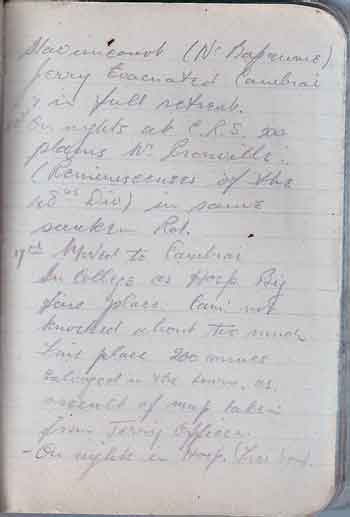 (Nr Bapaume)
Jerry Evacuated Cambrai
& in full retreat.
On nights at C.R.S. on
plains Nr
(Reminiscenses of the
Div) in same
sunken Rd.
17th Moved to Cambrai
In College as Hosp Big
fine place. Cam: not
knocked about too much
Fine place 200 mines
in the town. as
result of map taken
from Jerry Officer.
- On nights in Hosp.